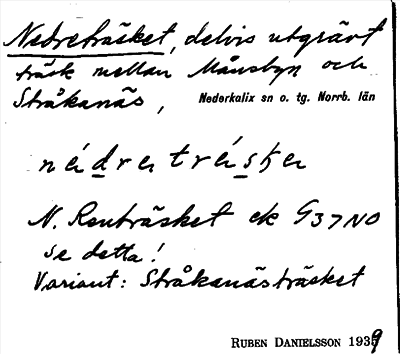 Nedreträsket, delvis utgrävt
träsk mellan Månsbyn och
Stråkanäs, Nederkalix sn o. tg. Norrb. län
N. Renträsket ek G37NO
se detta!
Variant: Stråkanästräsket
RUBEN DANIELSSON 1939